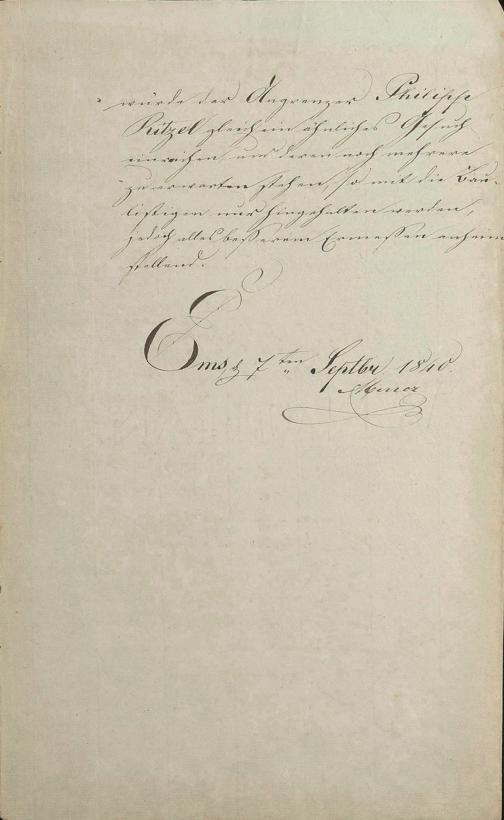 würde der Angrenzer Philipp
Kitzel gleich ein ähnliches Gesuch
einreichen, und deren noch mehrere
zu erwarten stehen, so mit die Bau-
lustigen nur hingehalten werden,
jedoch alles besserem Ermessen anheim
stellend.
Ems d 7ten Septbr 1840.